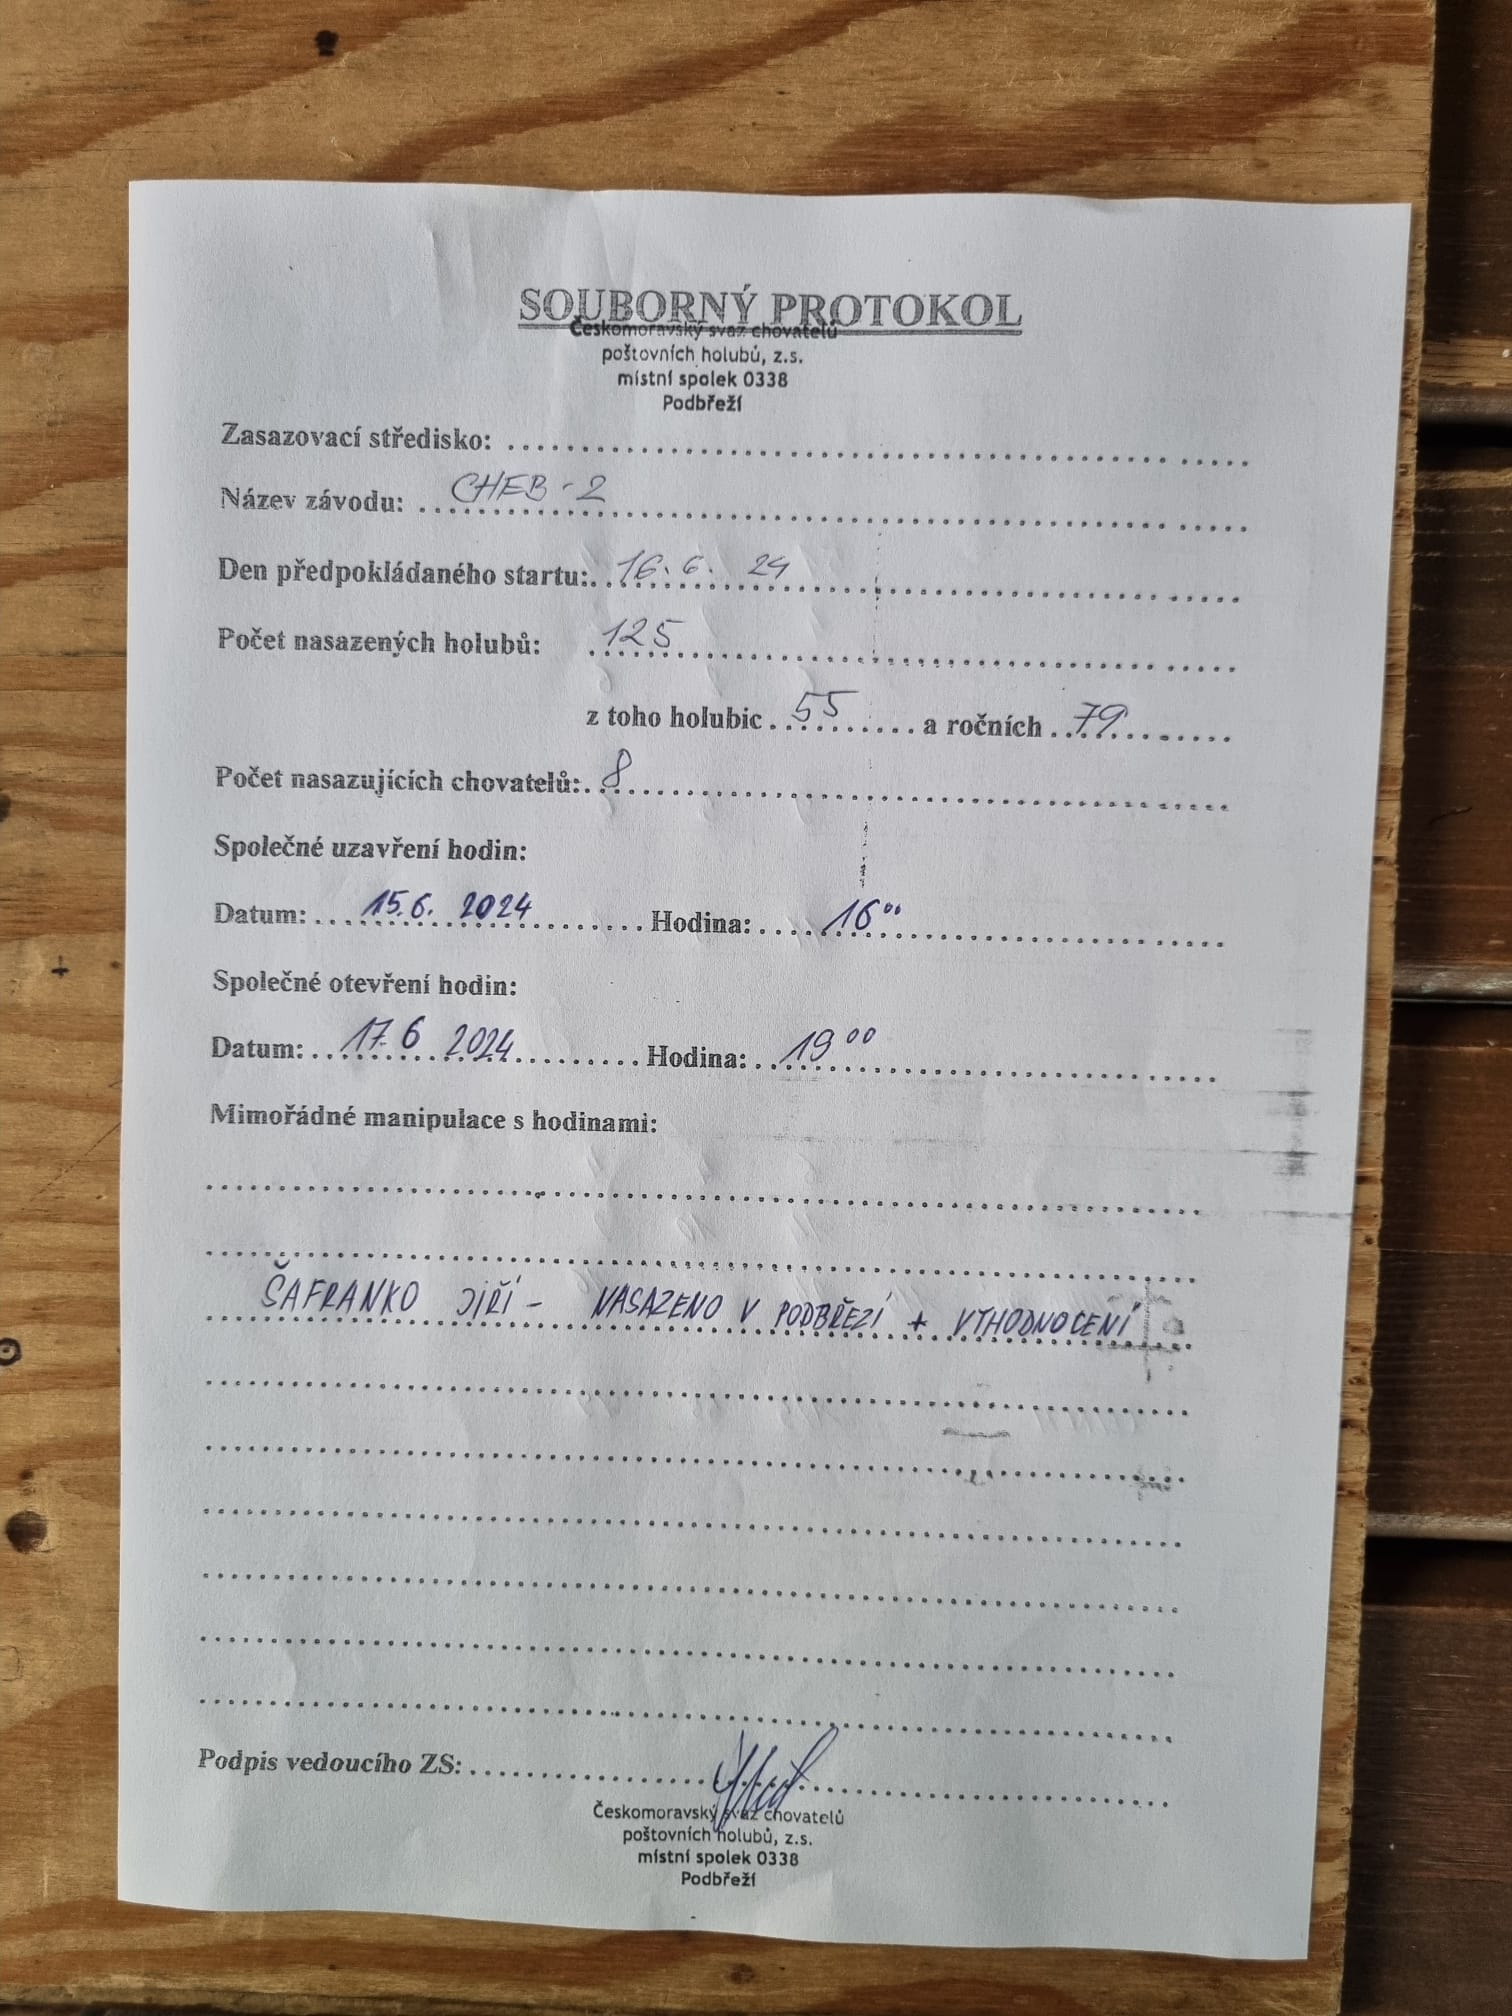 SOUBORNÝ PROTOKOL
Českomoravský svaz chovatelů
poštovních holubů, z.s.
místní spolek 0338
Podbřeží
Zasazovací středisko: ........................................
Název závodu: CHEB - 2
Den předpokládaného startu: 16. 6. 24
Počet nasazených holubů: 125
z toho holubic 55 a ročních 79
Počet nasazujících chovatelů: 8
Společné uzavření hodin:
Datum: 15.6. 2024 Hodina: 16⁰⁰
Společné otevření hodin:
Datum: 17.6 2024 Hodina: 19⁰⁰
Mimořádné manipulace s hodinami:
ŠAFRANKO JIŘÍ - NASAZENO V PODBŘEZÍ + VYHODNOCENÍ
Podpis vedoucího ZS:
Českomoravský svaz chovatelů
poštovních holubů, z.s.
místní spolek 0338
Podbřeží